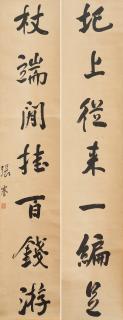 圯上從來一編足
杖端閒挂百錢游
張謇